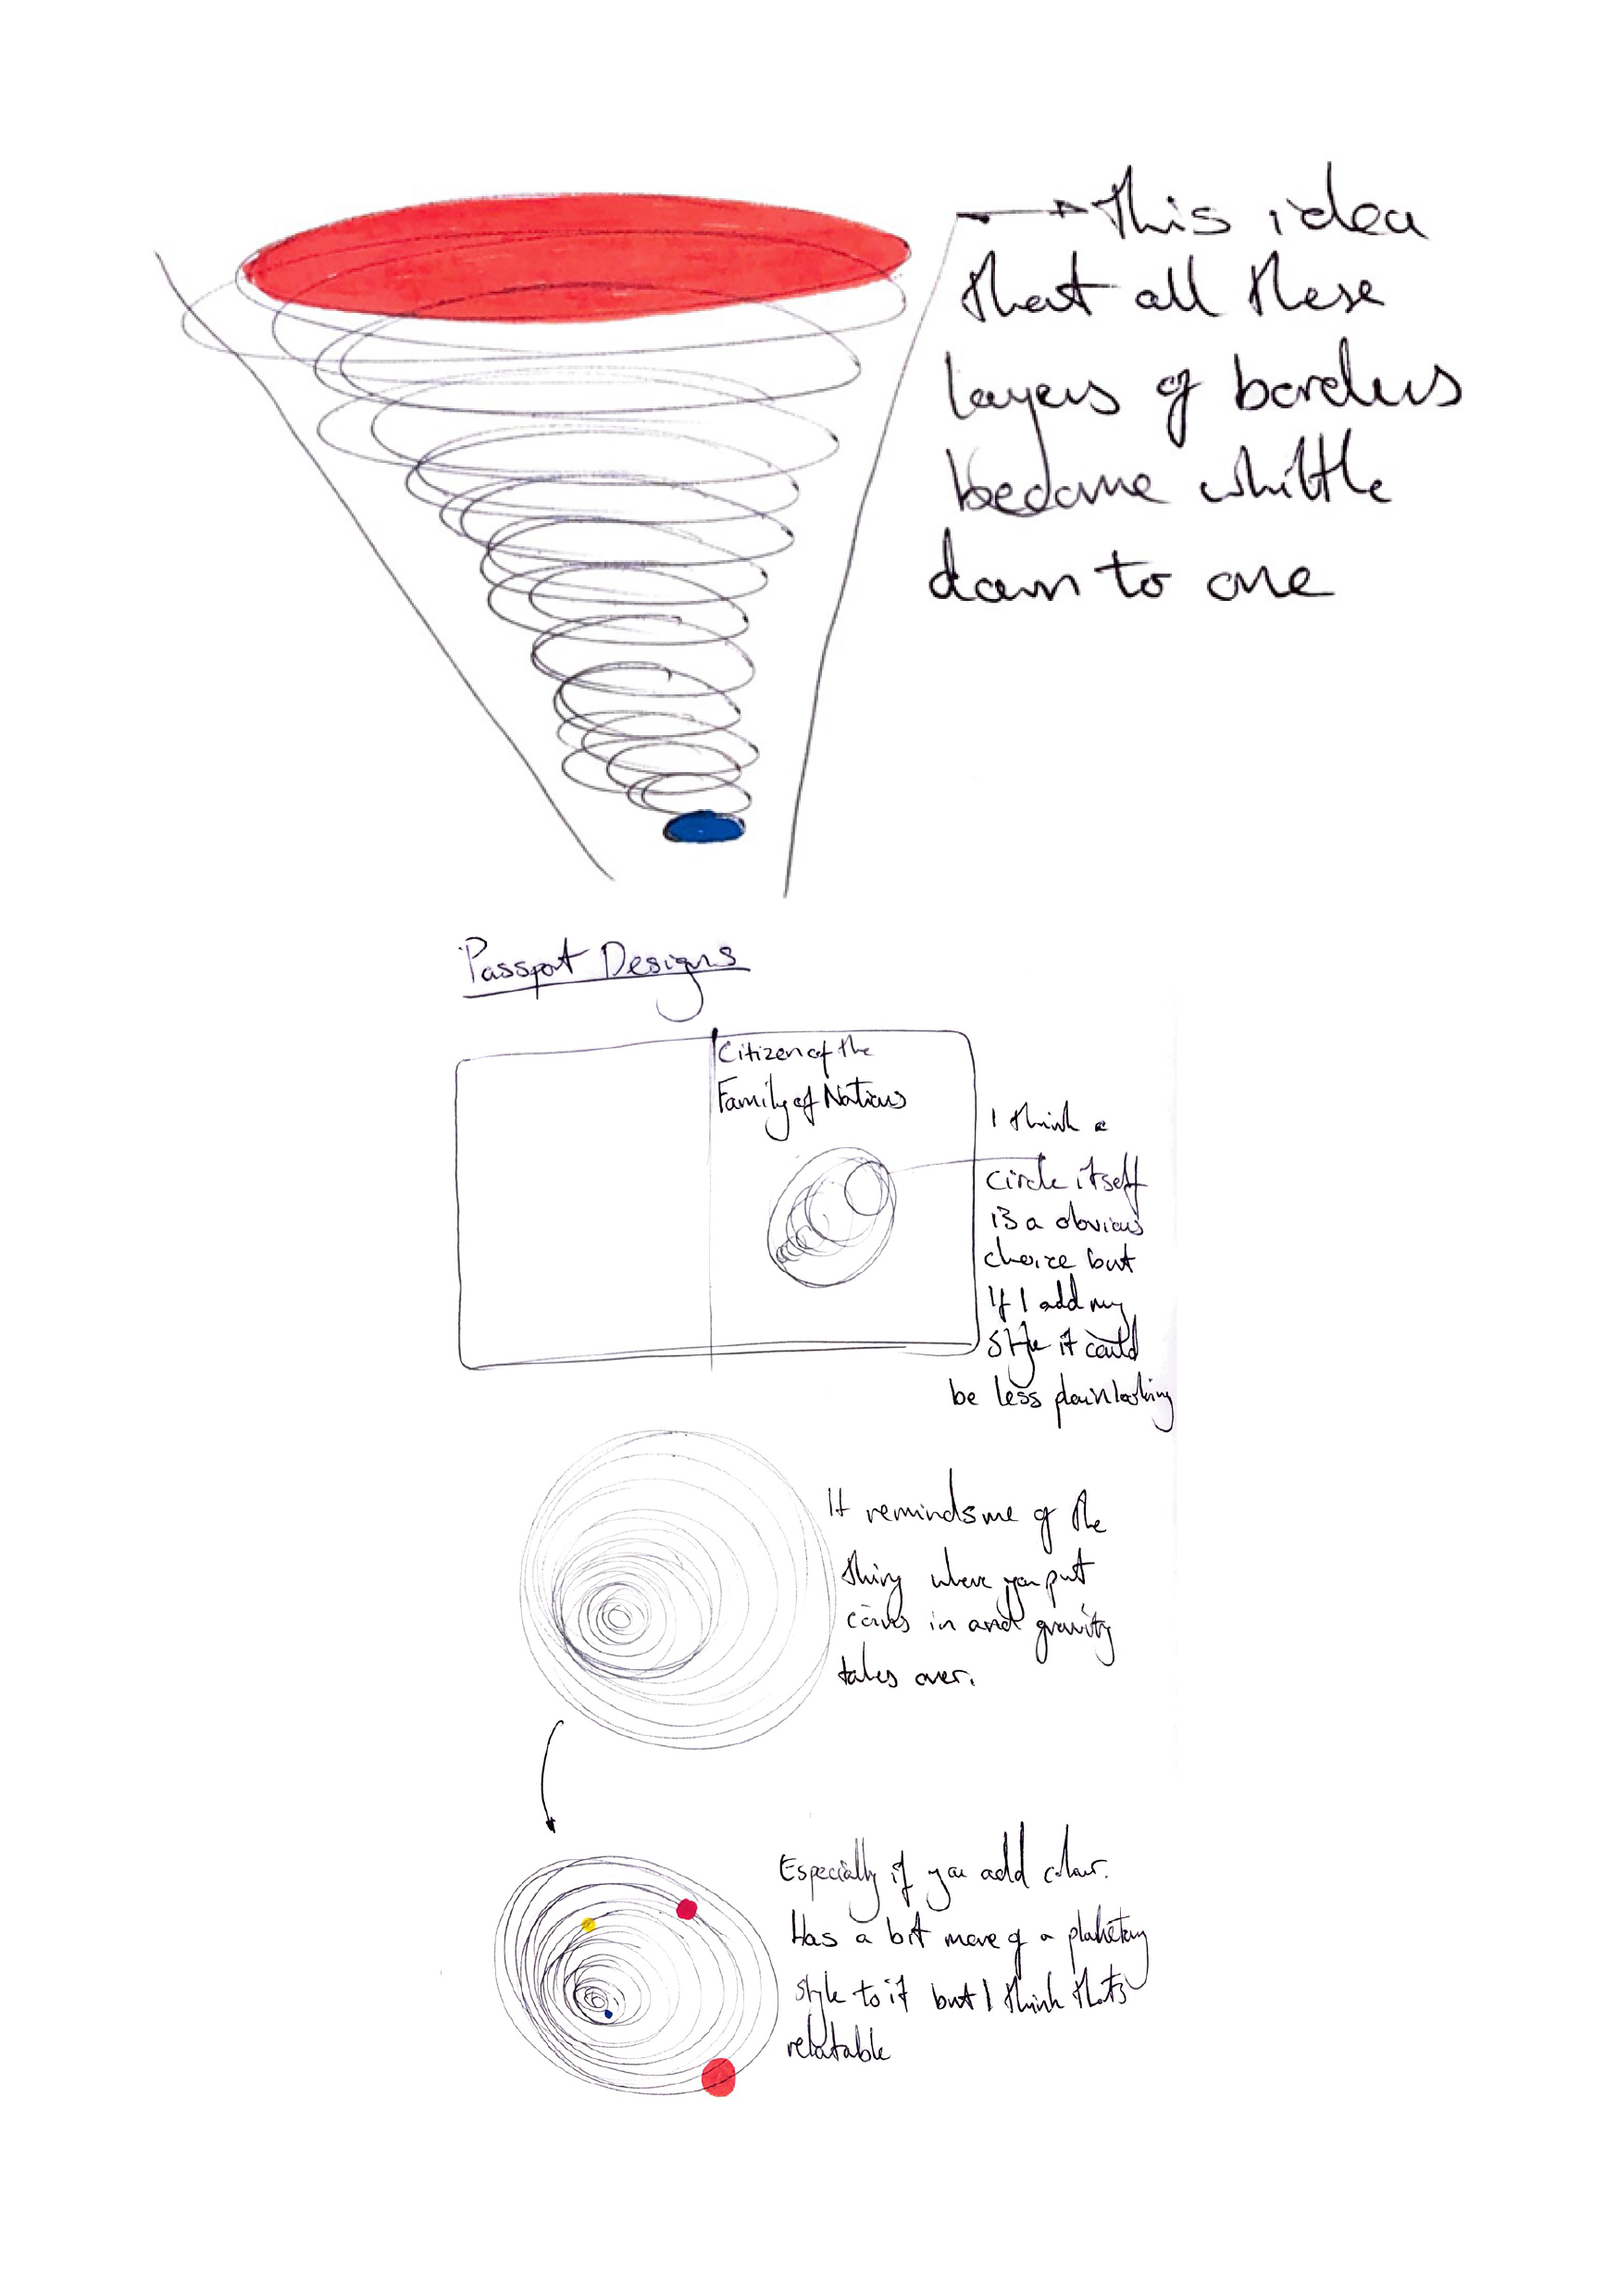 This idea
that all these
layers of borders
become whittle
down to one
Passport Designs
Citizen of the
Family of Nations
I think a
circle itself
is a obvious
choice but
If I add my
style it could
be less plain looking
It reminds me of the
thing where you put
coins in and gravity
takes over.
Especially if you add colour.
Has a bit more of a planetary
style to it but I think thats
relatable